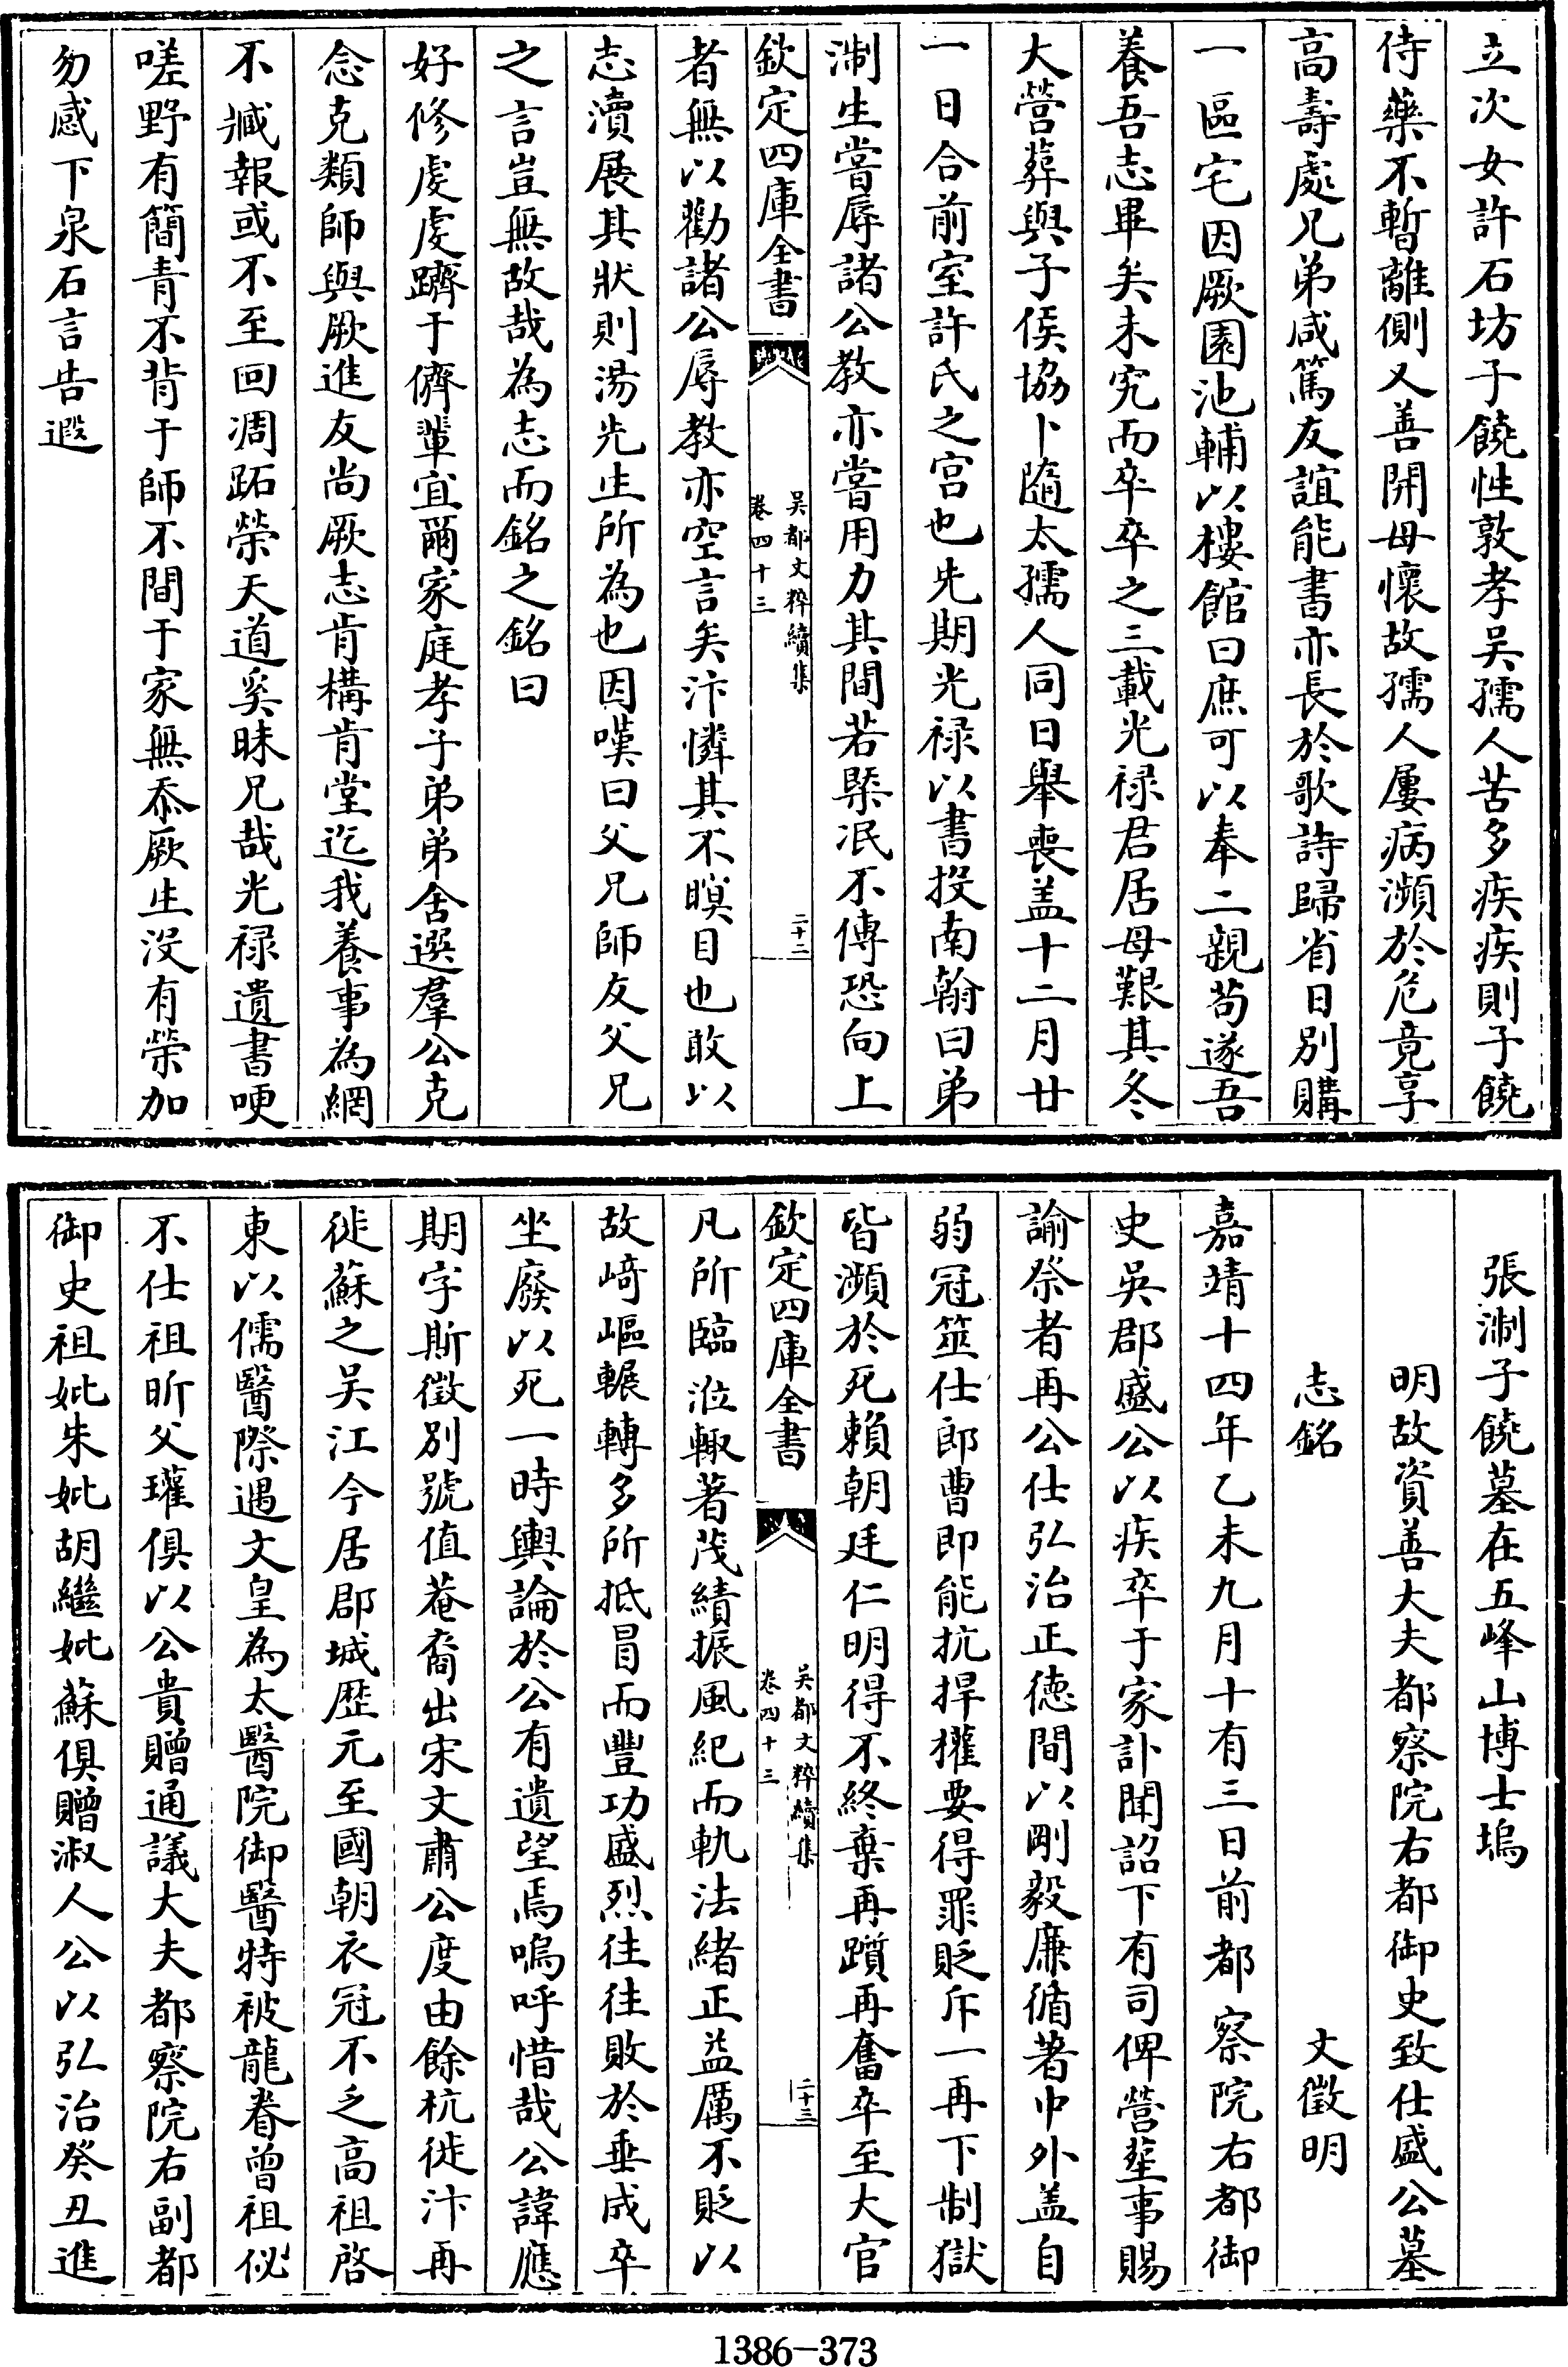 立次女許石坊子饒性敦孝吳孺人苦多疾疾則子饒
侍藥不暫離側又善開母懷故孺人屢病瀕於危竟享
高壽處兄弟咸篤友誼能書亦長於歌詩歸省日別購
一區宅因厥園池輔以樓館曰庶可以奉二親茍遂吾
養吾志畢矣未究而卒卒之三載光禄君居母艱其冬
大營葬與子俟協卜隨太孺人同日舉喪盖十二月廿
一日合前室許氏之宮也先期光禄以書投南翰曰弟
淛生嘗辱諸公教亦嘗用力其間若槩冺不傳恐向上
欽定四庫全書
吳都文粹續集
卷四十三
二十二
者無以勸諸公辱教亦空言矣汴憐其不瞑目也敢以
志瀆展其狀則湯先生所為也因嘆曰父兄師友父兄
之言豈無故哉為志而銘之銘曰
好修處處躋于儕輩宜爾家庭孝子弟弟舍選羣公克
念克類師與厥進友尚厥志肯構肯堂迄我養事為網
不臧報或不至回凋跖榮天道奚昧兄哉光禄遺書哽
嗟野有簡青不背于師不間于家無忝厥生没有榮加
勿感下泉石言告遐
張淛子饒墓在五峰山博士塢
明故資善大夫都察院右都御史致仕盛公墓
志銘
文徵明
嘉靖十四年乙未九月十有三日前都察院右都御
史吳郡盛公以疾卒于家訃聞詔下有司俾營塟事賜
諭祭者再公仕弘治正徳間以剛毅廉循著中外盖自
弱冠筮仕郎曹即能抗捍權要得罪貶斥一再下制獄
皆瀕於死賴朝廷仁明得不終棄再躓再奮卒至大官
欽定四庫全書
吳都文粹續集
卷四十三
二十三
凡所臨涖輙著茂績振風紀而軌法緒正益厲不貶以
故崎嶇輾轉多所抵冒而豐功盛烈往往敗於垂成卒
坐廢以死一時輿論於公有遺望焉嗚呼惜哉公諱應
期字斯徵別號值菴裔出宋文肅公度由餘杭徙汴再
徙蘇之吳江今居郡城歴元至國朝衣冠不乏高祖啓
東以儒醫際遇文皇為太醫院御醫特被龍眷曾祖佖
不仕祖昕父瓘俱以公貴贈通議大夫都察院右副都
御史祖妣朱妣胡繼妣蘇俱贈淑人公以弘治癸丑進
1386-373